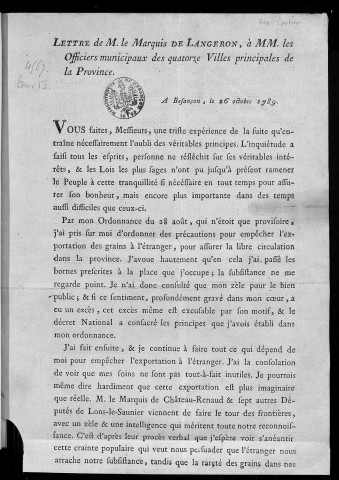 LETTRE de M. le Marquis DE LANGERON, à MM. les
Officiers municipaux des quatorze Villes principales de
la Province.
A Besançon, le 26 octobre 1789.
VOUS faites, Messieurs, une triste expérience de la suite qu'en-
traîne nécessairement l'oubli des véritables principes. L'inquiétude a
saisi tous les esprits, personne ne réfléchit sur ses véritables inté-
rêts, & les Lois les plus sages n'ont pu jusqu'à présent ramener
le Peuple à cette tranquilité si nécessaire en tout temps pour assu-
rer son bonheur, mais encore plus importante dans des temps
aussi difficiles que ceux-ci.
Par mon Ordonnance du 28 août, qui n'étoit que provisoire,
j'ai pris sur moi d'ordonner des précautions pour empêcher l'ex-
portation des grains à l'étranger, pour assurer la libre circulation
dans la province. J'avoue hautement qu'en cela j'ai passé les
bornes prescrites à la place que j'occupe; la subsistance ne me
regarde point. Je n'ai donc consulté que mon zèle pour le bien
public; & si ce sentiment, profondément gravé dans mon cœur, a
eu un excès, cet excès même est excusable par son motif, & le
décret National a consacré les principes que j'avois établi dans
mon ordonnance.
J'ai fait ensuite, & je continue à faire tout ce qui dépend de
moi pour empêcher l'exportation à l'étranger. J'ai la consolation
de voir que mes soins ne sont pas tout-à-fait inutiles. Je pourrois
même dire hardiment que cette exportation est plus imaginaire
que réelle. M. le Marquis de Château-Renaud & sept autres Dé-
putés de Lons-le-Saunier viennent de faire le tour des frontières,
avec un zèle & une intelligence qui méritent toute notre reconnois-
sance. C'est d'après leur procès verbal que j'espère voir s'anéantir
cette crainte populaire qui veut nous persuader que l'étranger nous
arrache notre subsistance, tandis que la rareté des grains dans nos